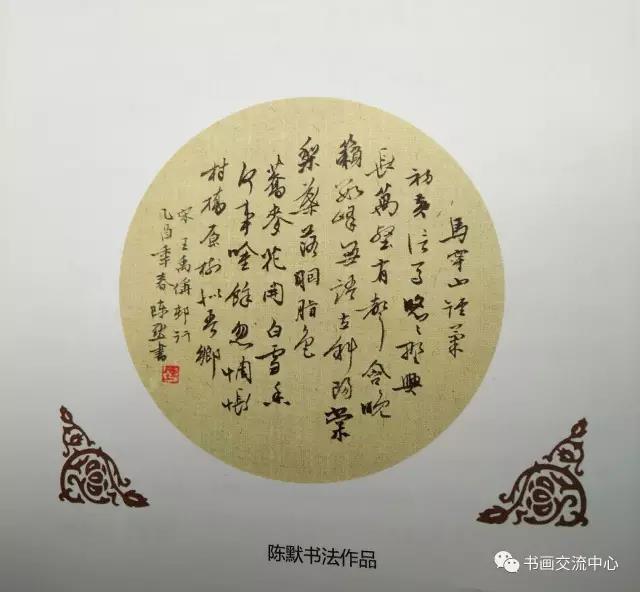 馬穿山徑菊
初黃信馬悠々野興
長萬壑有聲含晚
籟數峰無語立斜陽棠
梨葉落胭脂色
蕎麥花開白雪香
何事吟餘忽惆悵
村橋原樹似吾鄉
宋王禹偁邨行
乙酉季春陳默書
陈默书法作品
书画交流中心